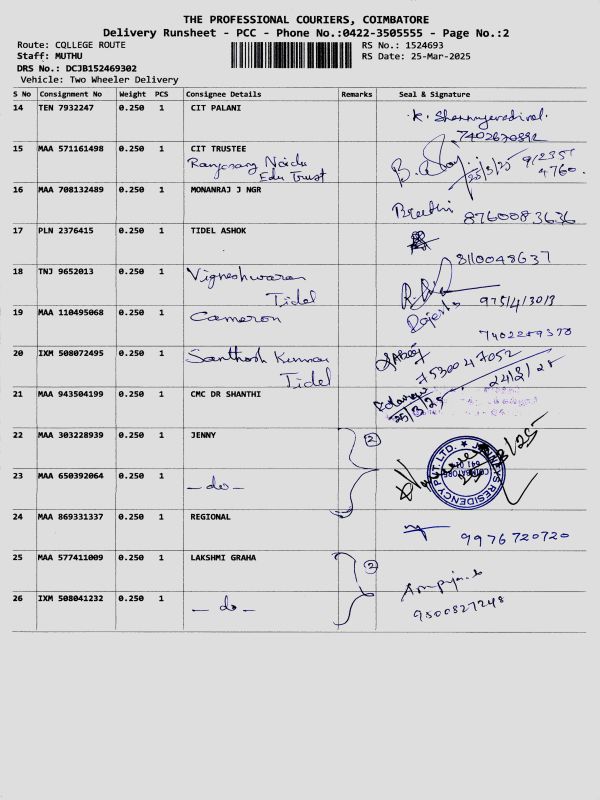 THE PROFESSIONAL COURIERS, COIMBATORE
Delivery Runsheet - PCC - Phone No.:0422-3505555 - Page No.:2
Route: CQLLEGE ROUTE
Staff: MUTHU
DRS No.: DCJB152469302
Vehicle: Two Wheeler Delivery
RS No.: 1524693
RS Date: 25-Mar-2025
S No Consignment No Weight PCS Consignee Details Remarks Seal & Signature
14 TEN 7932247 0.250 1 CIT PALANI
7402670892
15 MAA 571161498 0.250 1 CIT TRUSTEE
Naidu
Edu Trust
25/3/25
16 MAA 708132489 0.250 1 MONANRAJ J NGR
Preethi 8760083636
17 PLN 2376415 0.250 1 TIDEL ASHOK
8110048637
18 TNJ 9652013 0.250 1 Vigneshwaran
Tidel
19 MAA 110495068 0.250 1 Cameron
20 IXM 508072495 0.250 1 Santhosh Kumar
Tidel
7530047052
24/3/25
21 MAA 943504199 0.250 1 CMC DR SHANTHI
25/3/25
22 MAA 303228939 0.250 1 JENNY 2
23 MAA 650392064 0.250 1 - do -
JENNEYS RESIDENCY PVT. LTD.
COIMBATORE
24 MAA 869331337 0.250 1 REGIONAL
9976720720
25 MAA 577411009 0.250 1 LAKSHMI GRAHA 2
26 IXM 508041232 0.250 1 - do -
9500827248